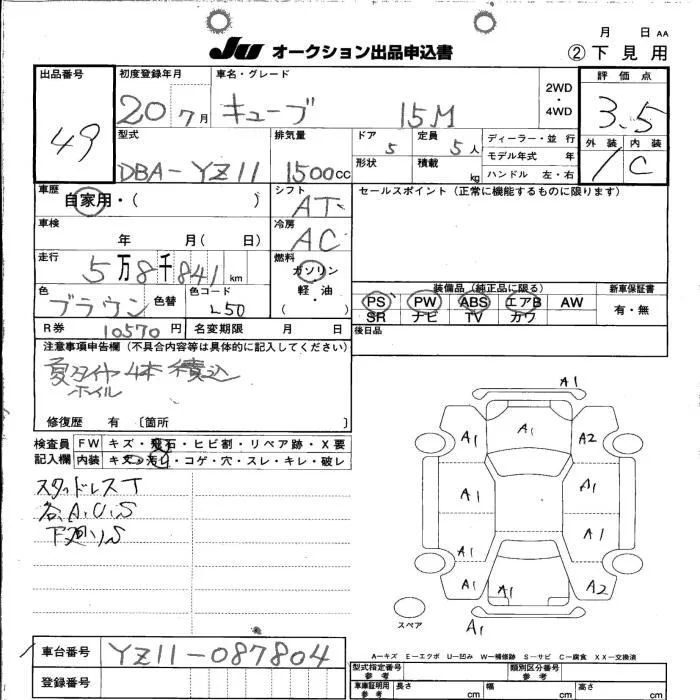 月 日 AA
JU オークション出品申込書 ②下見用
出品番号 49
初度登録年月 20 7月
車名・グレード キューブ 15M
2WD・4WD
評価点 3.5
外装 1 内装 C
型式 DBA-YZ11
排気量 1500cc
ドア 5 定員 5人
形状 積載 kg
ディーラー・並行
モデル年式 年
ハンドル 左・右
車歴 自家用・( )
シフト AT
セールスポイント(正常に機能するものに限ります)
車検 年 月( 日)
冷房 AC
走行 5万8千841km
燃料 ガソリン・軽油 ( )
色 ブラウン 色替 色コード L50
装備品(純正品に限る) 新車保証書
PS PW ABS エアB AW 有・無
SR ナビ TV カワ
R券 10570円 名変期限 月 日
後日品
注意事項申告欄(不具合内容等は具体的に記入してください)
夏タイヤ 4本 積込
ホイル
修復歴 有 〔箇所 〕
検査員記入欄
FW キズ・飛石・ヒビ割・リペア跡・X要
内装 キズ・汚レ・コゲ・穴・スレ・キレ・破レ
スタッドレスT
各.A.U.S
下廻りS
A1
A1 A1 A2
A1 A1
A1 A1
A1 A1 A2
スペア A1
車台番号 YZ11-087804
登録番号
A-キズ E-エクボ U-凹み W-補修跡 S-サビ C-腐食 XX-交換済
型式指定番号 参考 類別区分番号 参考
車庫証明用 参考 長さ cm 幅 cm 高さ cm